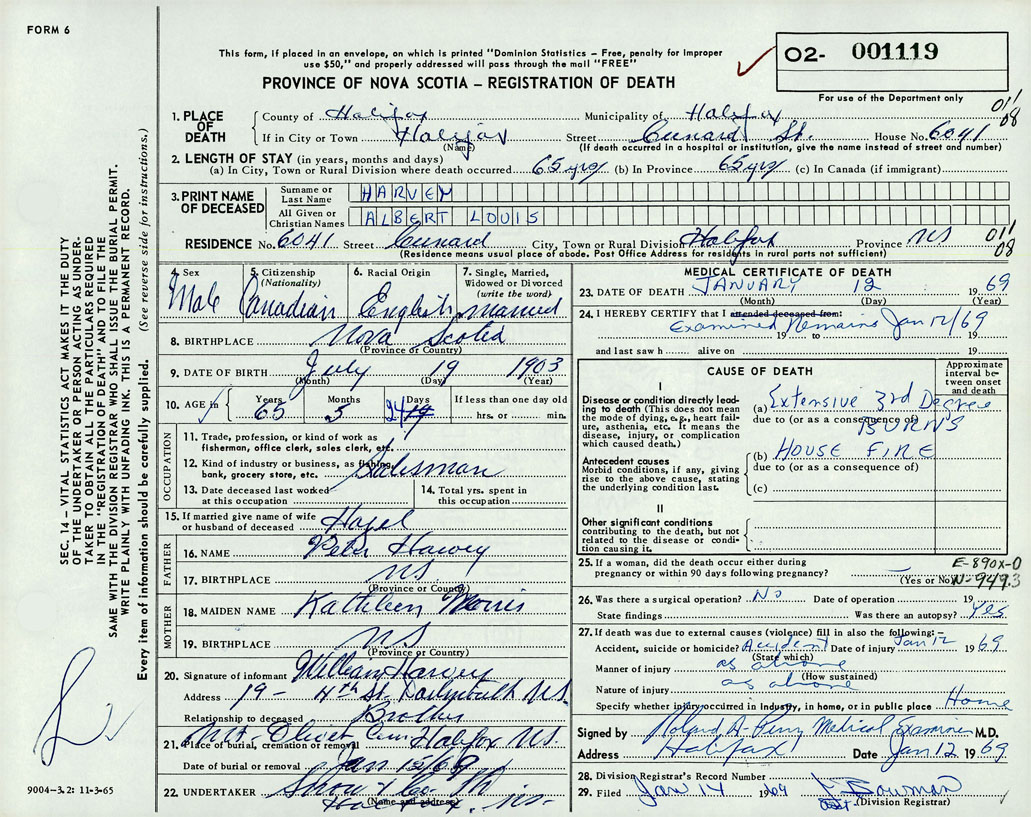 FORM 6
This form, if placed in an envelope, on which is printed "Dominion Statistics – Free, penalty for improper
use $50," and properly addressed will pass through the mail "FREE"
O2- 001119
For use of the Department only
PROVINCE OF NOVA SCOTIA – REGISTRATION OF DEATH
011
08
1. PLACE OF DEATH County of Halifax Municipality of Halifax
If in City or Town Halifax Street Cunard St. House No. 6041
(Name) (If death occurred in a hospital or institution, give the name instead of street and number)
2. LENGTH OF STAY (in years, months and days)
(a) In City, Town or Rural Division where death occurred 65 yrs (b) In Province 65 yrs (c) In Canada (if immigrant)
3. PRINT NAME OF DECEASED Surname or Last Name HARVEY
All Given or Christian Names ALBERT LOUIS
RESIDENCE No. 6041 Street Cunard City, Town or Rural Division Halifax Province NS 011
08
(Residence means usual place of abode. Post Office Address for residents in rural parts not sufficient)
4. Sex Male
5. Citizenship (Nationality) Canadian
6. Racial Origin English
7. Single, Married, Widowed or Divorced (write the word) married
8. BIRTHPLACE Nova Scotia
(Province or Country)
9. DATE OF BIRTH July 19 1903
(Month) (Day) (Year)
10. AGE Years 65 Months 5 Days 24 If less than one day old hrs. or min.
OCCUPATION
11. Trade, profession, or kind of work as
fisherman, office clerk, sales clerk, etc.
12. Kind of industry or business, as fishing,
bank, grocery store, etc. Salesman
13. Date deceased last worked
at this occupation
14. Total yrs. spent in
this occupation
15. If married give name of wife
or husband of deceased Hazel
FATHER
16. NAME Peter Harvey
17. BIRTHPLACE NS
(Province or Country)
MOTHER
18. MAIDEN NAME Kathleen Morris
19. BIRTHPLACE NS
(Province or Country)
20. Signature of informant William Harvey
Address 19 – 4th St. Dartmouth NS
Relationship to deceased Brother
21. Place of burial, cremation or removal Mt. Olivet Cem Halifax NS.
Date of burial or removal Jan /69
22. UNDERTAKER Snow & Co.
(Name and address) NS.
MEDICAL CERTIFICATE OF DEATH
23. DATE OF DEATH JANUARY 12 1969
(Month) (Day) (Year)
24. I HEREBY CERTIFY that I attended deceased from:
Examined Remains Jan 12/69
19 to 19
and last saw h alive on 19
CAUSE OF DEATH
Approximate interval between onset and death
I
Disease or condition directly lead-
ing to death (This does not mean
the mode of dying, e.g., heart fail-
ure, asthenia, etc. It means the
disease, injury, or complication
which caused death.)
(a) Extensive 3rd Degree
due to (or as a consequence of) BURNS
Antecedent causes
Morbid conditions, if any, giving
rise to the above cause, stating
the underlying condition last.
(b) HOUSE FIRE
due to (or as a consequence of)
(c)
II
Other significant conditions
contributing to the death, but not
related to the disease or condi-
tion causing it.
25. If a woman, did the death occur either during
pregnancy or within 90 days following pregnancy? – (Yes or No)
E-890X-0
N-949.3
26. Was there a surgical operation? No Date of operation 19
State findings Was there an autopsy? Yes
27. If death was due to external causes (violence) fill in also the following:–
Accident, suicide or homicide? Accident Date of injury Jan 12 1969
(State which)
Manner of injury as above
(How sustained)
Nature of injury as above
Specify whether injury occurred in industry, in home, or in public place Home
Signed by Roland A. Perry Medical Examiner M.D.
Address Halifax Date Jan 12 1969
28. Division Registrar's Record Number
29. Filed Jan 14 1969 Bowman
(Division Registrar)
SEC. 14 – VITAL STATISTICS ACT MAKES IT THE DUTY
OF THE UNDERTAKER OR PERSON ACTING AS UNDER-
TAKER TO OBTAIN ALL THE PARTICULARS REQUIRED
IN THE "REGISTRATION OF DEATH" AND TO FILE THE
SAME WITH THE DIVISION REGISTRAR WHO SHALL ISSUE THE BURIAL PERMIT.
WRITE PLAINLY WITH UNFADING INK. THIS IS A PERMANENT RECORD.
Every item of information should be carefully supplied. (See reverse side for instructions.)
9004-3.2: 11-3-65